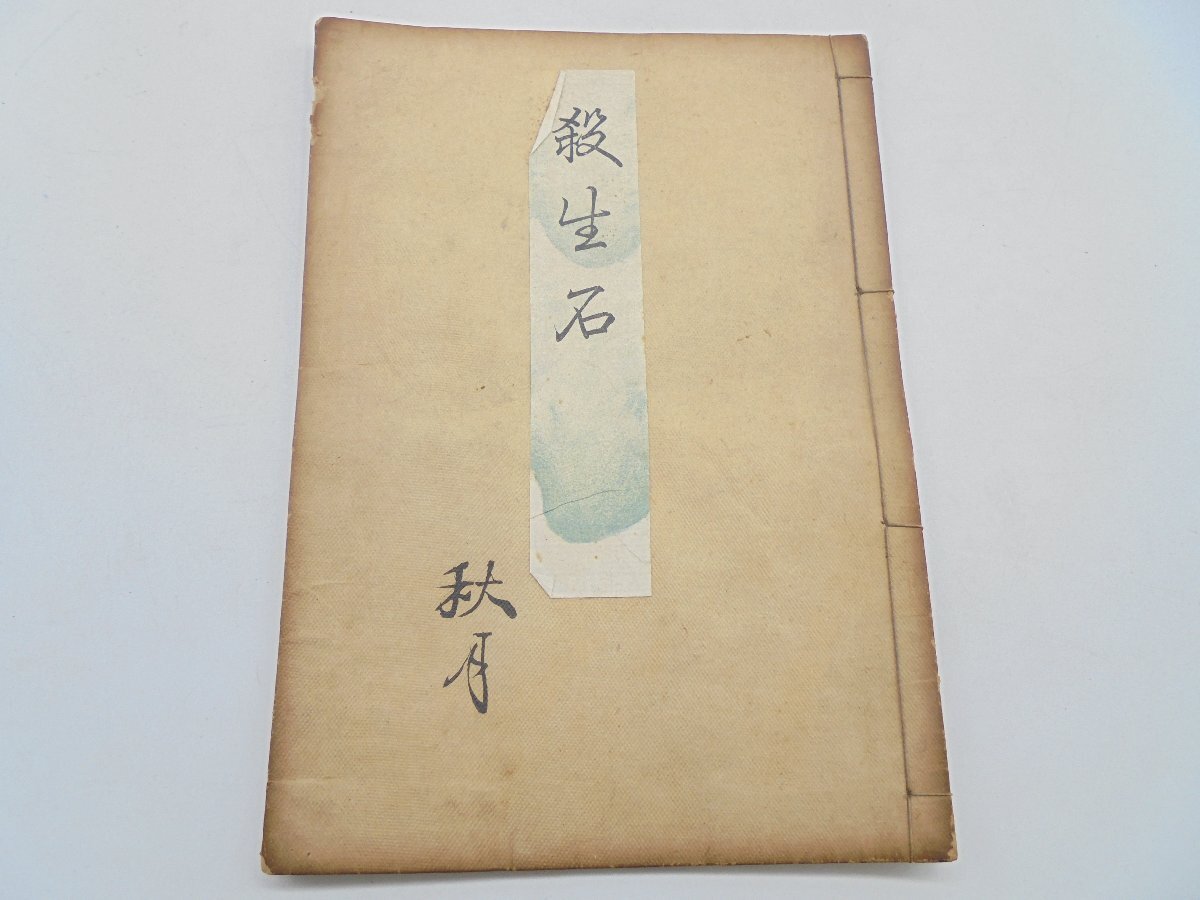 殺生石
秋月